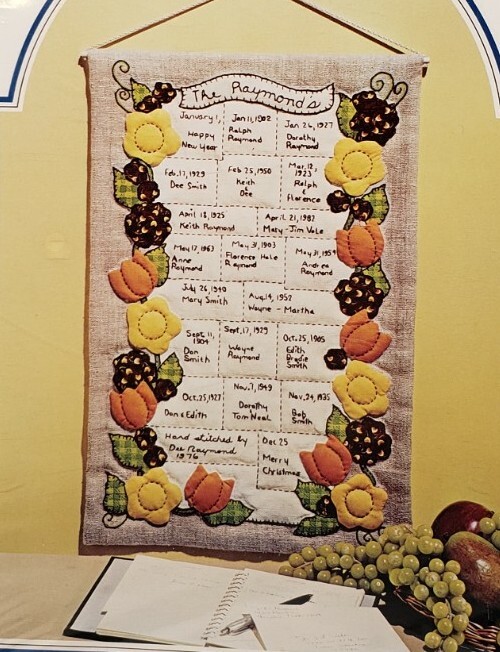 The Raymonds
January 1,
Happy
New Year
Jan 11, 1902
Ralph
Raymond
Jan 26, 1927
Dorothy
Raymond
Feb. 17, 1929
Dee Smith
Feb 25, 1950
Keith
&
Dee
Mar. 12,
1923
Ralph
&
Florence
April 18, 1925
Keith Raymond
April 21, 1982
Mary - Jim Vale
May 17, 1963
Anne
Raymond
May 31, 1903
Florence Hale
Raymond
May 31, 1954
Andrea
Raymond
July 26, 1940
Mary Smith
Aug. 14, 1957
Wayne - Martha
Sept. 11,
1904
Dan
Smith
Sept. 17, 1929
Wayne
Raymond
Oct. 25, 1905
Edith
Brodie
Smith
Oct. 25, 1927
Dan & Edith
Nov. 7, 1949
Dorothy
Tom Neal
Nov. 24, 1935
Bob
Smith
Hand stitched by
Deb Raymond
1976
Dec 25
Merry
Christmas